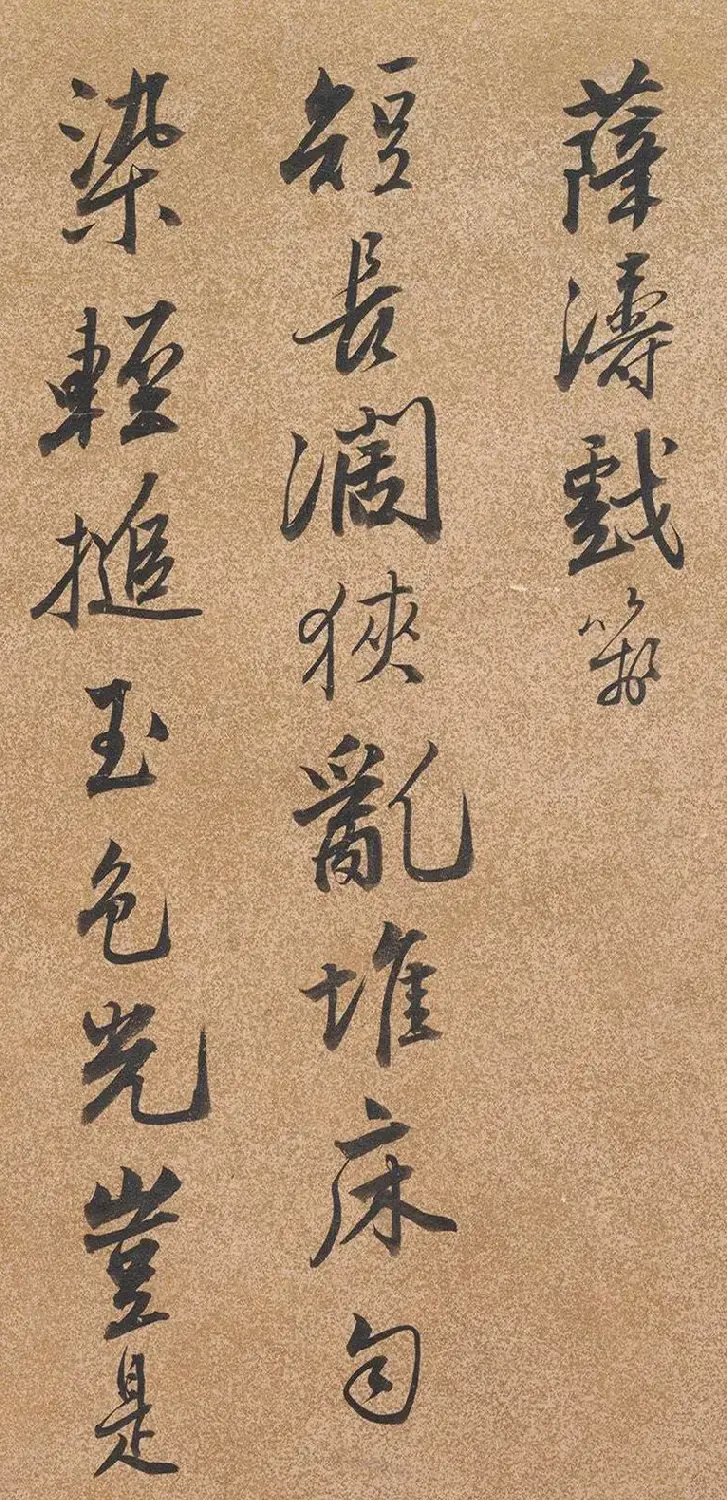 薛濤戲箋
短長濶狹亂堆床勻
染輕搥玉色光豈是